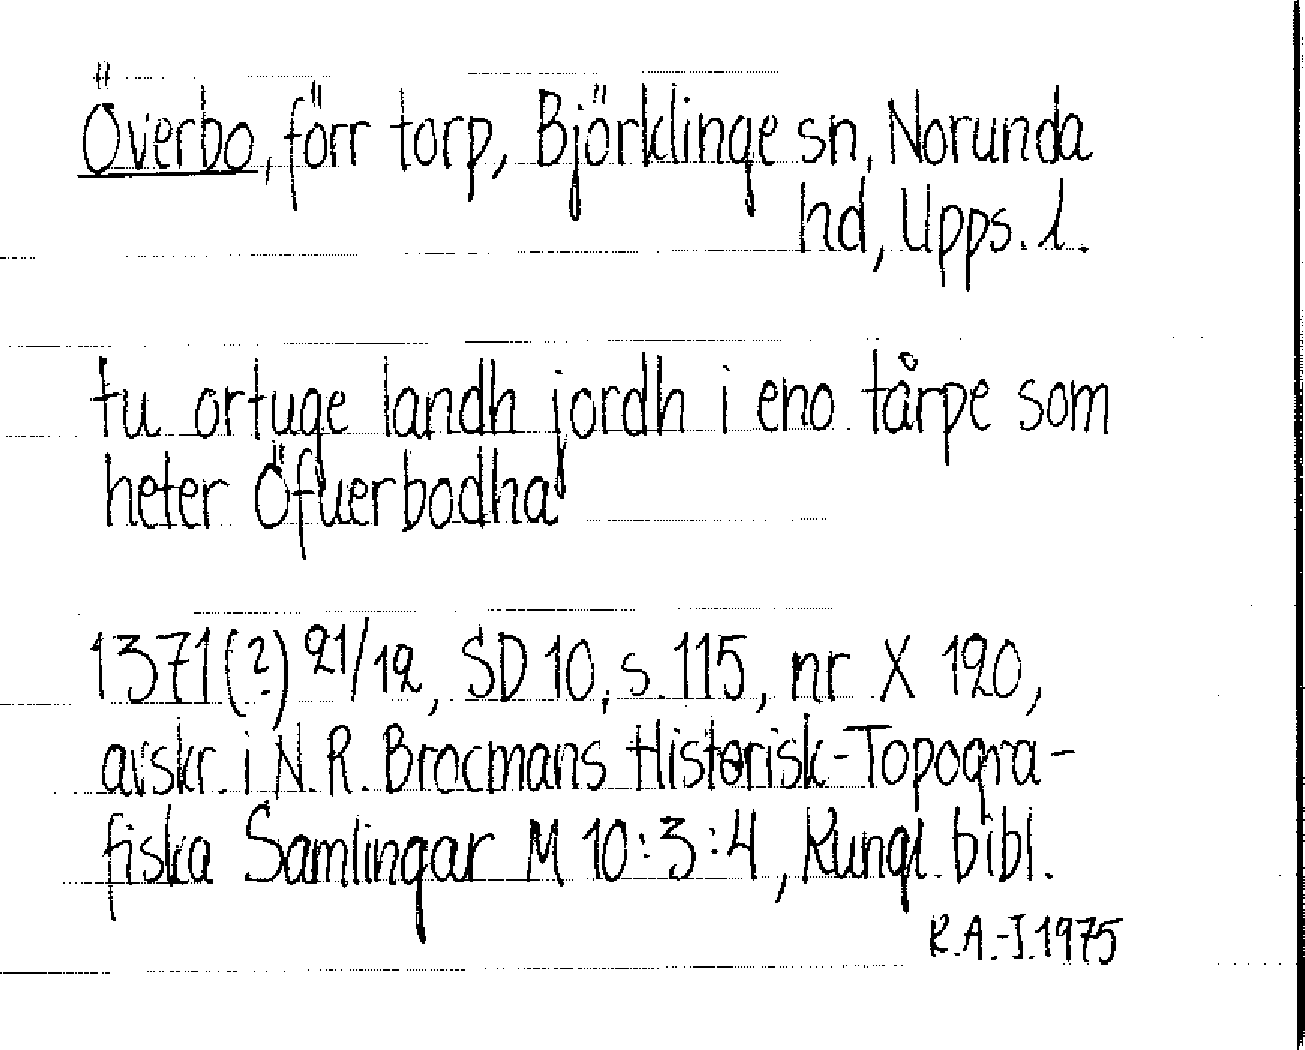 Överbo, förr torp, Björklinge sn, Norunda
hd, Upps. l.
tu ortuge landh jordh i eno tårpe som
heter Öfuerbodha
1371(?) 21/12, SD 10, s. 115, nr X 120,
avskr. i N. R. Brocmans Historisk-Topogra-
fiska Samlingar M 10:3:4, Kungl. bibl.
R.A.-J. 1975